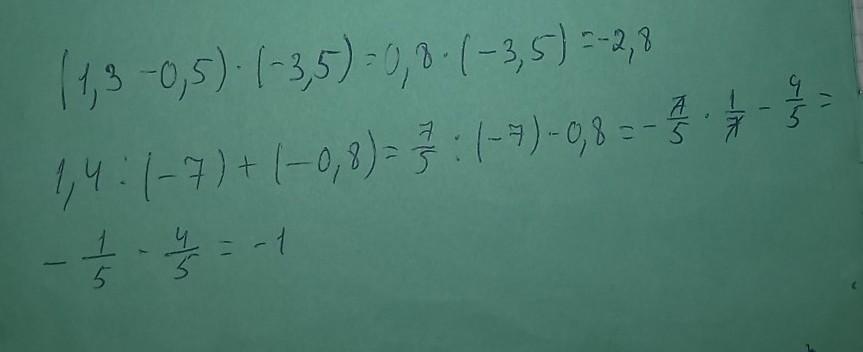 (1,3 - 0,5) · (-3,5) = 0,8 · (-3,5) = -2,8
1,4 : (-7) + (-0,8) = 7/5 : (-7) - 0,8 = - 7/5 · 1/7 - 4/5 =
- 1/5 - 4/5 = -1